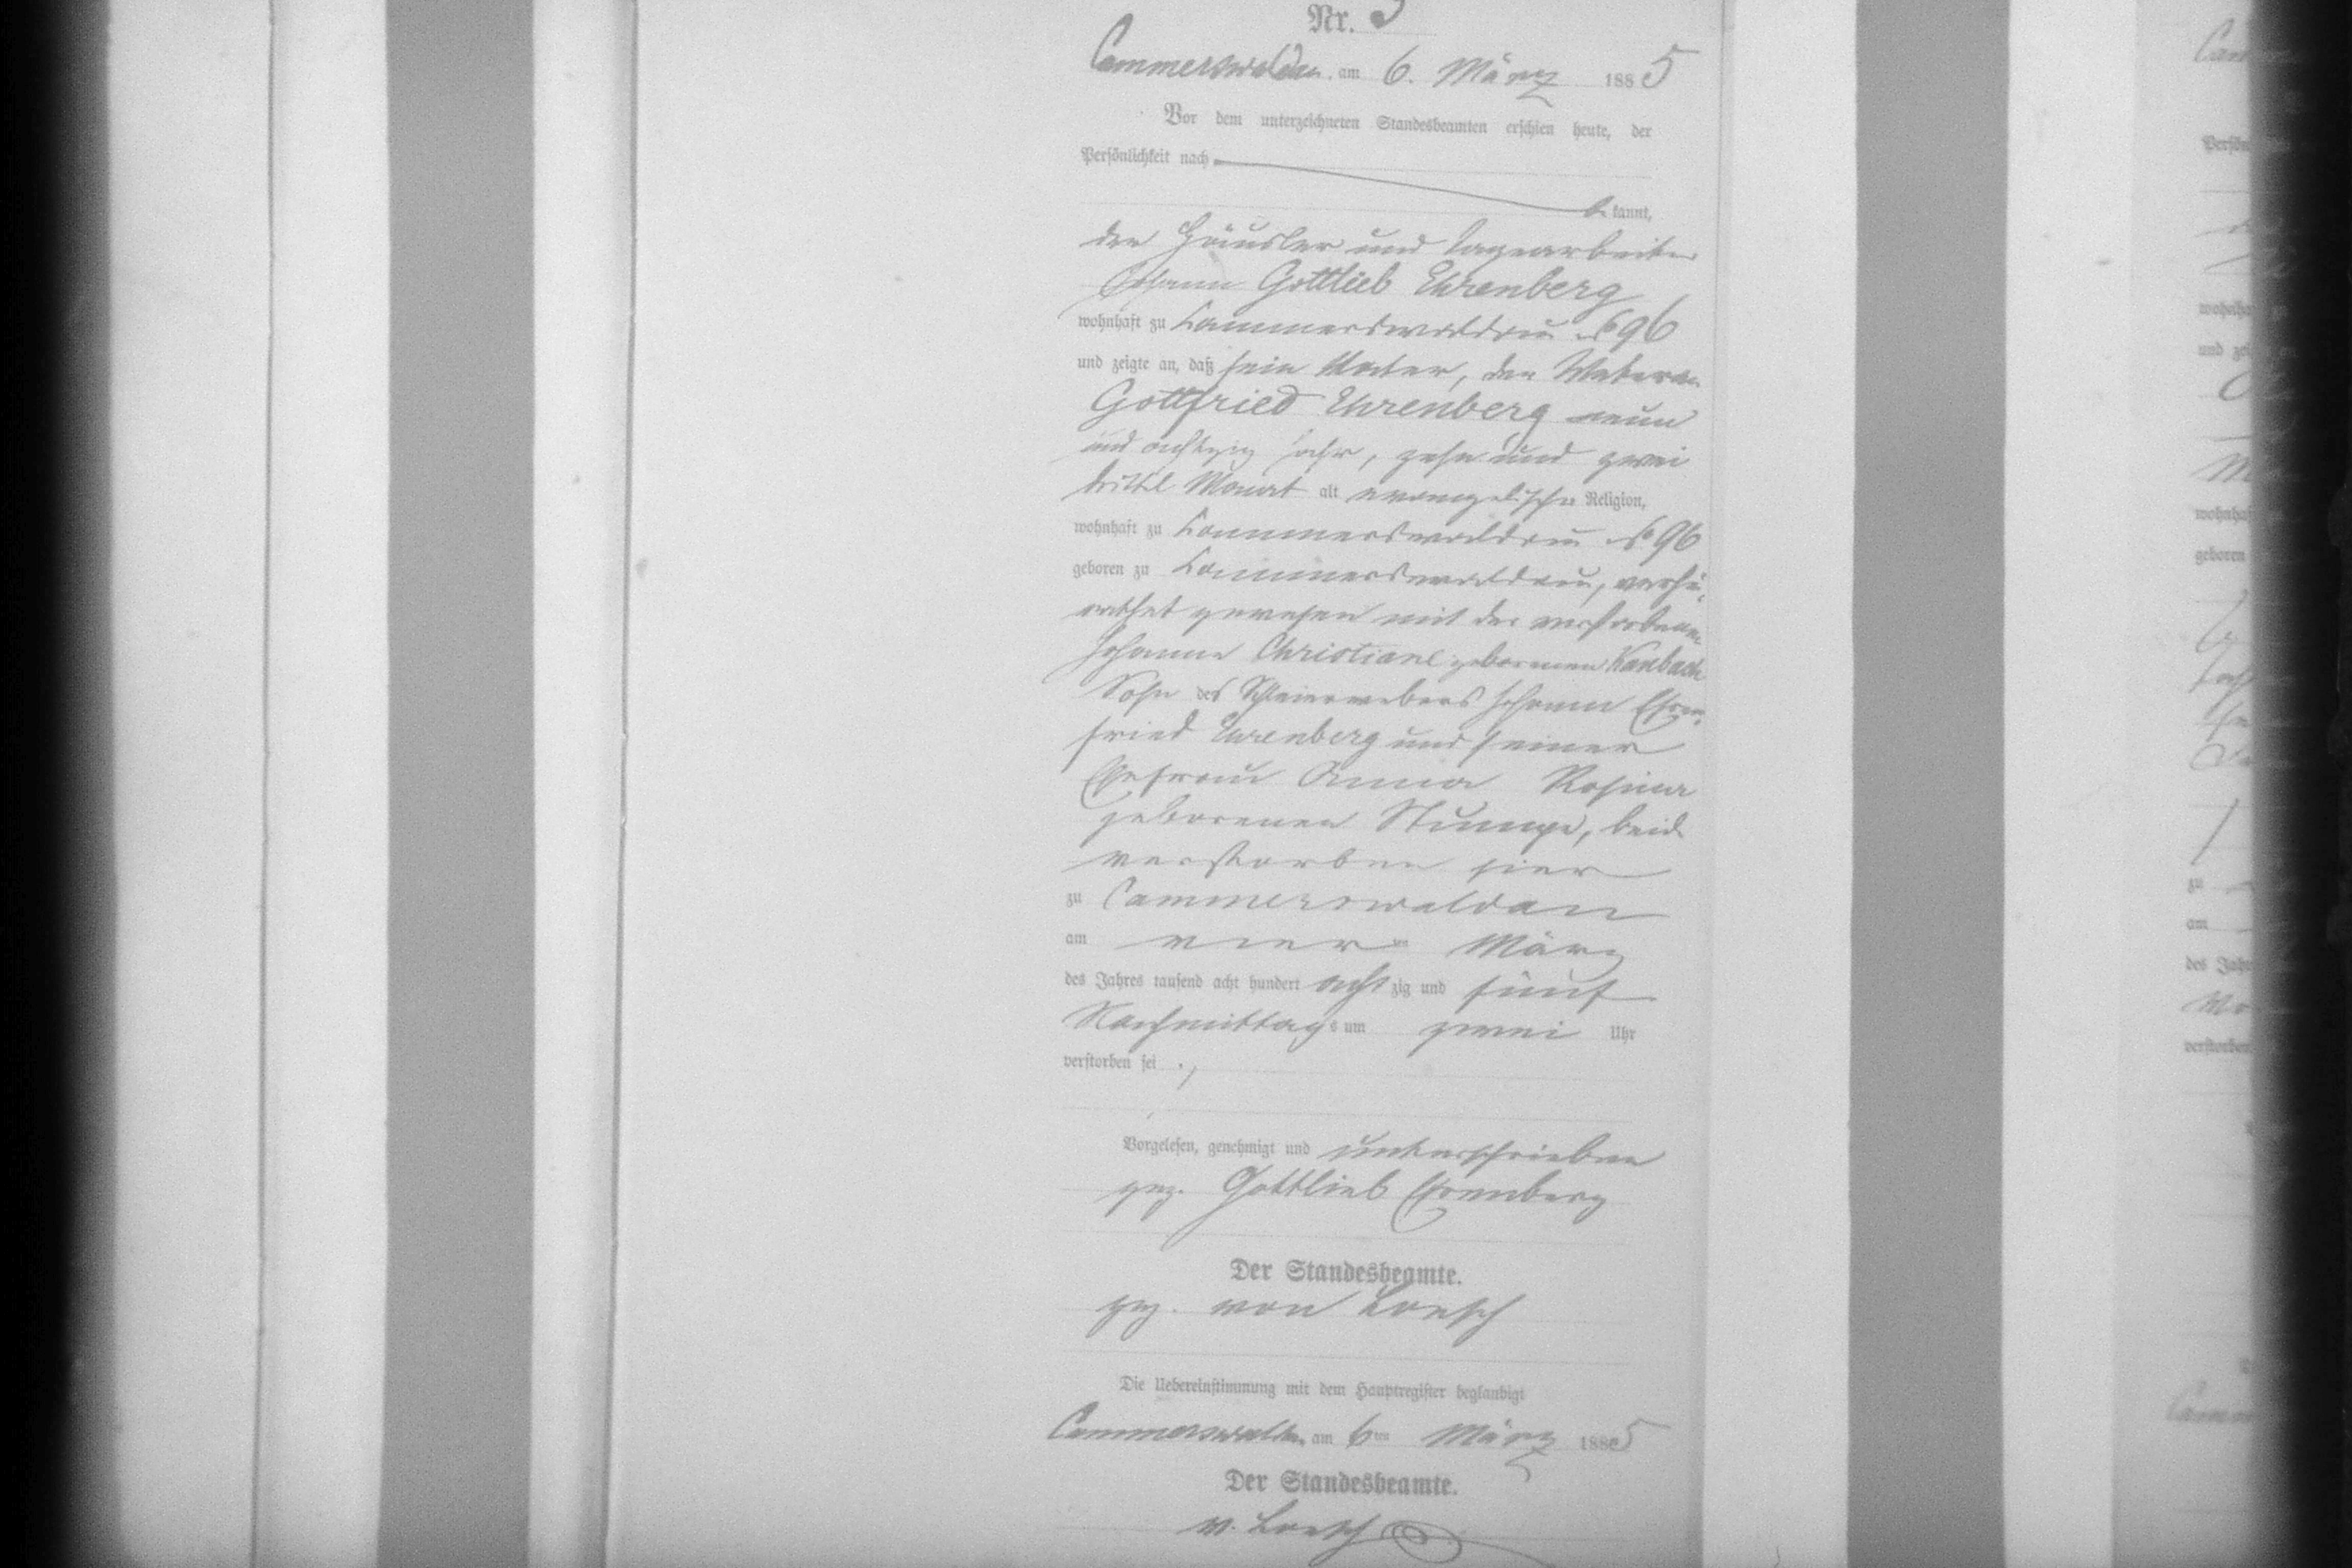 Nr. 5
Cammerswaldau, am 6. März 1885
Vor dem unterzeichneten Standesbeamten erschien heute, der
Persönlichkeit nach
be kannt,
der Häusler und Tagearbeiter
Johann Gottlieb Ehrenberg
wohnhaft zu Kammerswaldau No 96
und zeigte an, daß sein Vater, der Veteran
Gottfried Ehrenberg neun
und achtzig Jahr, zehn und zwei
drittel Monat alt evangelischer Religion,
wohnhaft zu Kammerswaldau No 96
geboren zu Kammerswaldau, verhei-
rathet gewesen mit der verstorbenen
Johanne Christiane geborenen Kambach
Sohn des Schleierwebers Johann Ehren-
fried Ehrenberg und seiner
Ehefrau Anna Rosina
geborenen Stumpe, beide
verstorben hier
zu Cammerswaldau
am vier ten März
des Jahres tausend acht hundert acht zig und fünf
Nachmittags um zwei Uhr
verstorben sei ./
Vorgelesen, genehmigt und unterschrieben
gez. Gottlieb Ehrenberg
Der Standesbeamte.
gez. von Loesch
Die Uebereinstimmung mit dem Hauptregister beglaubigt
Cammerswaldau, am 6ten März 1885
Der Standesbeamte.
v. Loesch